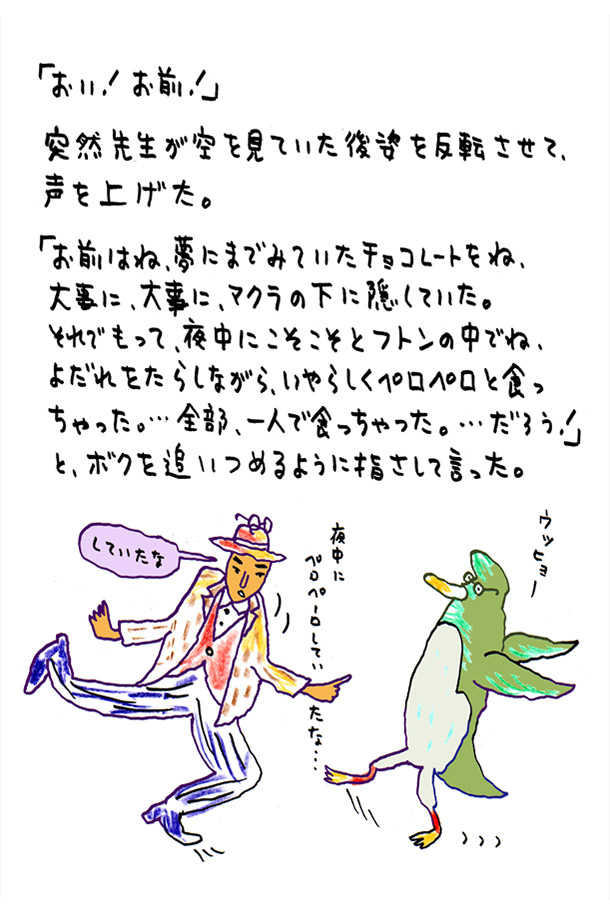 「おい！お前！」
突然先生が空を見ていた後姿を反転させて、
声を上げた。
「お前はね、夢にまでみていたチョコレートをね、
大事に、大事に、マクラの下に隠していた。
それでもって、夜中にこそこそとフトンの中でね、
よだれをたらしながら、いやらしくペロペロと食っ
ちゃった。…全部、一人で食っちゃった。…だろう！」
と、ボクを追いつめるように指さして言った。
していたな
夜中に
ペロペーロしてい
たな…
ウッヒョー